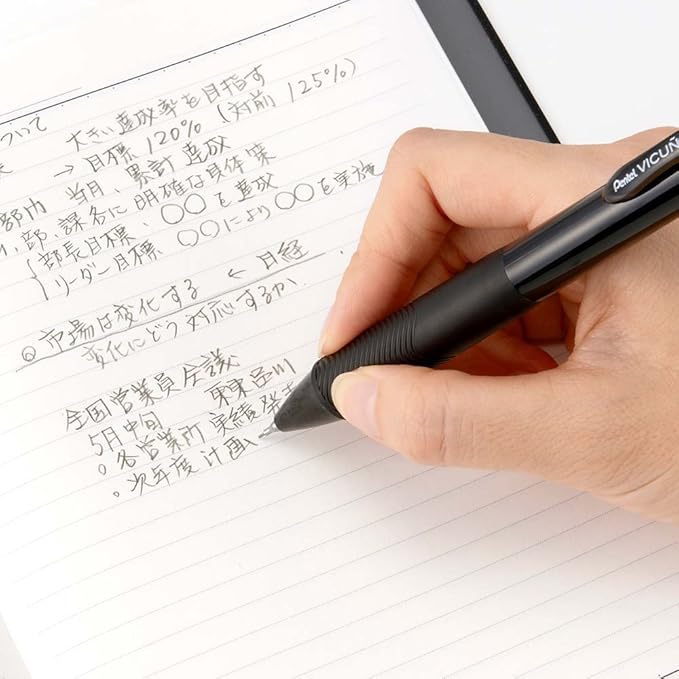 ついて
大きい達成率を目指す
→ 目標 120% (対前 125%)
部門 当月、累計達成
部、課各に明確な具体策
部長目標、○○を達成
リーダー目標 ○○により○○を実施
◎ 市場は変化する ← 日経
変化にどう対応するか、
全国営業員会議
5月中旬 東京品川
○ 各営業所 実績発
○ 次年度計画、
Pentel VICUÑ